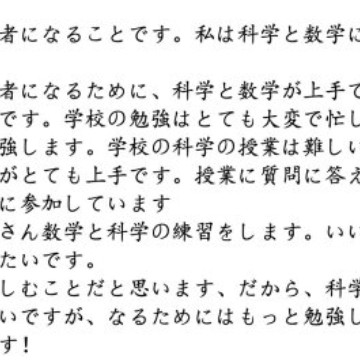 者になることです。私は科学と数学に
者になるために、科学と数学が上手で
です。学校の勉強はとても大変で忙し
強します。学校の科学の授業は難しい
がとても上手です。授業に質問に答え
に参加しています
さん数学と科学の練習をします。いい
たいです。
しむことだと思います、だから、科学
いですが、なるためにはもっと勉強し
す!